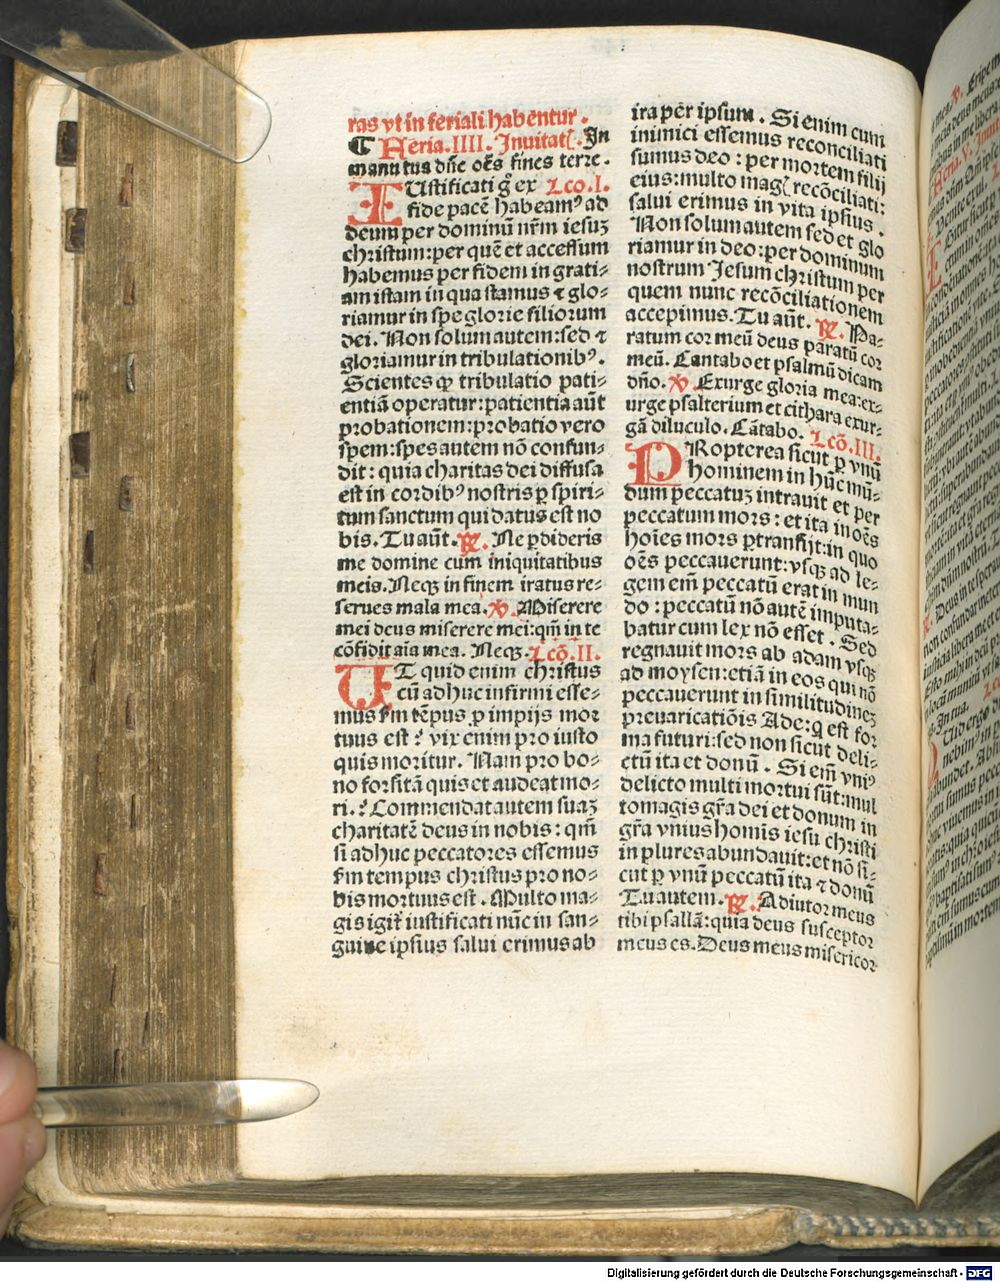 ras vt in feriali habentur.
¶ Feria.IIII. Inuitat̃. In
manu tua dñe oẽs fines terre.
IUstificati g̊ ex Lco.I.
fide pacẽ habeamꝰ ad
deum per dominũ nr̃m iesuȝ
christum:per quẽ et accessum
habemus per fidem in grati⸗
am istam in qua stamus ⁊ glo⸗
riamur in spe glorie filiorum
dei. Non solum autem:sed ⁊
gloriamur in tribulationibꝰ.
Scientes ꝙ tribulatio pati⸗
entiã operatur:patientia aũt
probationem:probatio vero
spem:spes autem nõ confun⸗
dit: quia charitas dei diffusa
est in cordibꝰ nostris ꝑ spiri⸗
tum sanctum qui datus est no
bis. Tu aũt. ℟. Ne ꝑdideris
me domine cum iniquitatibus
meis. Necꝫ in finem iratus re⸗
serues mala mea. ℣. Miserere
mei deus miserere mei:qm̃ in te
cõfidit aĩa mea. Necꝫ. Lcõ.II.
UT quid enim christus
cũ adhuc infirmi esse⸗
mus fm tẽpus ꝓ impijs mor
tuus est? vix enim pro iusto
quis moritur. Nam pro bo⸗
no forsitã quis et audeat mo⸗
ri.? Commendat autem suaȝ
charitatẽ deus in nobis: qm̃
si adhuc peccatores essemus
fm tempus christus pro no⸗
bis mortuus est. Multo ma⸗
gis igit̃ iustificati nũc in san⸗
guine ipsius salui erimus ab
ira per ipsum. Si enim cum
inimici essemus reconciliati
sumus deo: per mortem filij
eius:multo mag̃ recõciliati:
salui erimus in vita ipsius.
Non solum autem sed et glo
riamur in deo:per dominum
nostrum Jesum christum per
quem nunc recõciliationem
accepimus. Tu aũt. ℟. Pa⸗
ratum cor meũ deus paratũ cor
meũ. Cantabo et psalmũ dicam
dño. ℣. Exurge gloria mea:ex⸗
urge psalterium et cithara exur⸗
gã diluculo. Cãtabo. Lcõ.III.
PRopterea sicut ꝑ vnũ
hominem in hũc mũ⸗
dum peccatuȝ intrauit et per
peccatum mors: et ita in oẽs
hoĩes mors ꝑtransijt:in quo
oẽs peccauerunt:vsqꝫ ad le⸗
gem em̃ peccatũ erat in mun
do: peccatũ nõ autẽ imputa⸗
batur cum lex nõ esset. Sed
regnauit mors ab adam vsqꝫ
ad moysen:etiã in eos qui nõ
peccauerunt in similitudineȝ
preuaricatiõis Ade:q̃ est for
ma futuri:sed non sicut deli⸗
ctũ ita et donũ. Si em̃ vniꝰ
delicto multi mortui sũt:mul
tomagis gr̃a dei et donum in
gr̃a vnius homĩs iesu christi
in plures abundauit:et nõ si⸗
cut ꝑ vnũ peccatũ ita ⁊ donũ
Tu autem. ℟. Adiutor meus
tibi psallã:quia deus susceptor
meus es. Deus meus misericor
Digitalisierung gefördert durch die Deutsche Forschungsgemeinschaft - DFG